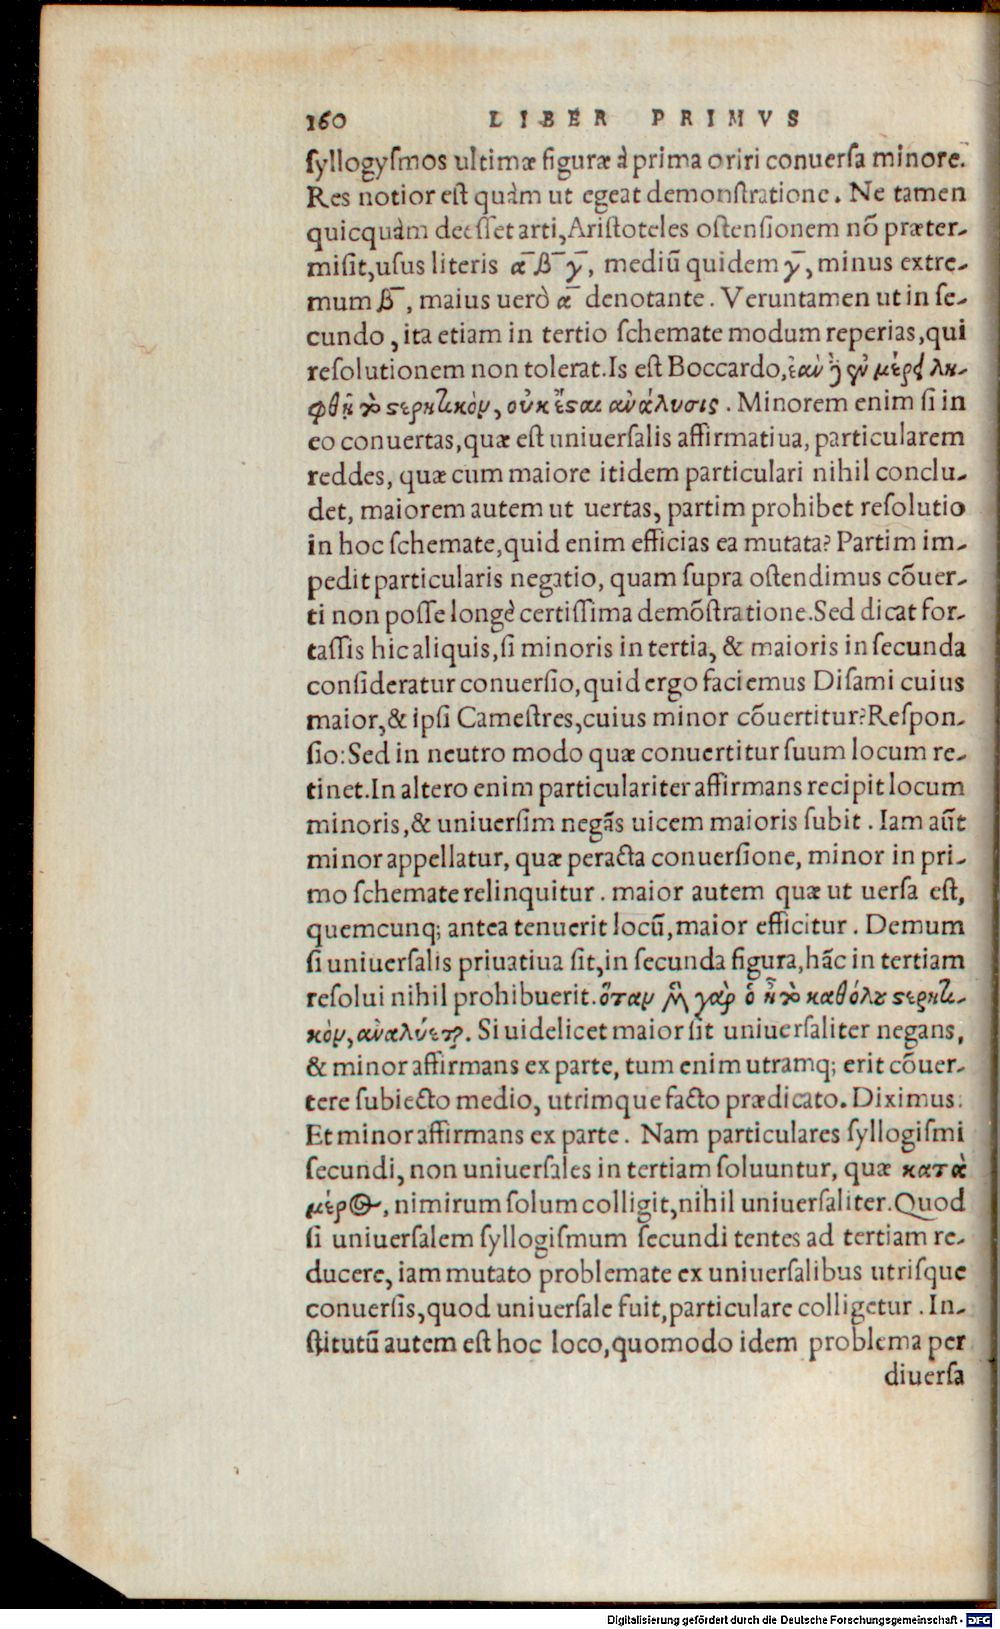 160 LIBER PRIMVS
ſyllogyſmos ultimæ figuræ à prima oriri conuerſa minore.
Res notior eſt quàm ut egeat demonſtratione. Ne tamen
quicquàm deeſſet arti, Ariſtoteles oſtenſionem nõ præter-
miſit, uſus literis α̅ β̅ γ̅, mediũ quidem γ̅, minus extre-
mum β̅, maius uerò α̅ denotante. Veruntamen ut in ſe-
cundo, ita etiam in tertio ſchemate modum reperias, qui
reſolutionem non tolerat. Is eſt Boccardo, ἐὰν ἢ ἐν μέρει λη-
φθῇ τὸ ϛερητικὸν, οὐκ ἔϛαι ἀνάλυσις. Minorem enim ſi in
eo conuertas, quæ eſt uniuerſalis affirmatiua, particularem
reddes, quæ cum maiore itidem particulari nihil conclu-
det, maiorem autem ut uertas, partim prohibet reſolutio
in hoc ſchemate, quid enim efficias ea mutata? Partim im-
pedit particularis negatio, quam ſupra oſtendimus cõuer-
ti non poſſe longè certiſſima demõſtratione. Sed dicat for-
taſſis hic aliquis, ſi minoris in tertia, & maioris in ſecunda
conſideratur conuerſio, quid ergo faciemus Diſami cuius
maior, & ipſi Cameſtres, cuius minor cõuertitur? Reſpon-
ſio: Sed in neutro modo quæ conuertitur ſuum locum re-
tinet. In altero enim particulariter affirmans recipit locum
minoris, & uniuerſim negãs uicem maioris ſubit. Iam aũt
minor appellatur, quæ peracta conuerſione, minor in pri-
mo ſchemate relinquitur. maior autem quæ ut uerſa eſt,
quemcunq; antea tenuerit locũ, maior efficitur. Demum
ſi uniuerſalis priuatiua ſit, in ſecunda figura, hãc in tertiam
reſolui nihil prohibuerit. ὅταν μὲν γὰρ ᾖ τὸ καθόλου ϛερητι-
κὸν, ἀναλύεται. Si uidelicet maior ſit uniuerſaliter negans,
& minor affirmans ex parte, tum enim utramq; erit cõuer-
tere ſubiecto medio, utrimque facto prædicato. Diximus.
Et minor affirmans ex parte. Nam particulares ſyllogiſmi
ſecundi, non uniuerſales in tertiam ſoluuntur, quæ κατὰ
μέρος, nimirum ſolum colligit, nihil uniuerſaliter. Quod
ſi uniuerſalem ſyllogiſmum ſecundi tentes ad tertiam re-
ducere, iam mutato problemate ex uniuerſalibus utriſque
conuerſis, quod uniuerſale fuit, particulare colligetur. In-
ſtitutũ autem eſt hoc loco, quomodo idem problema per
diuerſa
Digitalisierung gefördert durch die Deutsche Forschungsgemeinschaft - DFG